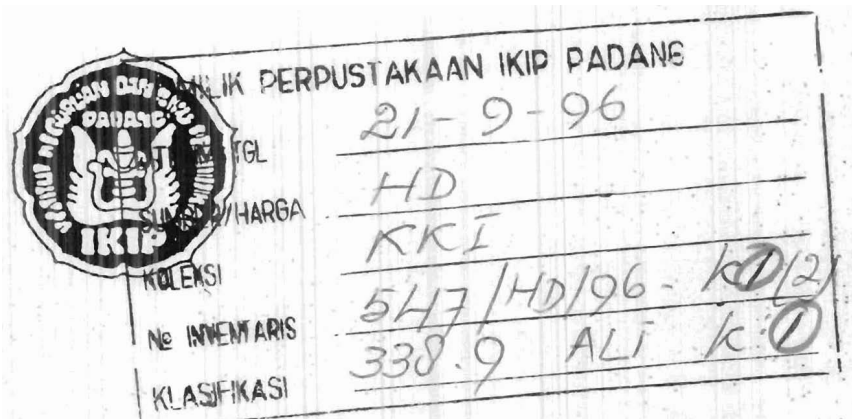 MILIK PERPUSTAKAAN IKIP PADANG
TGL 21-9-96
SUMBER/HARGA HD
KOLEKSI KKI
No INVENTARIS 547/HD/96-K1(2)
KLASIFIKASI 338.9 ALI K:1
PADANG
IKIP